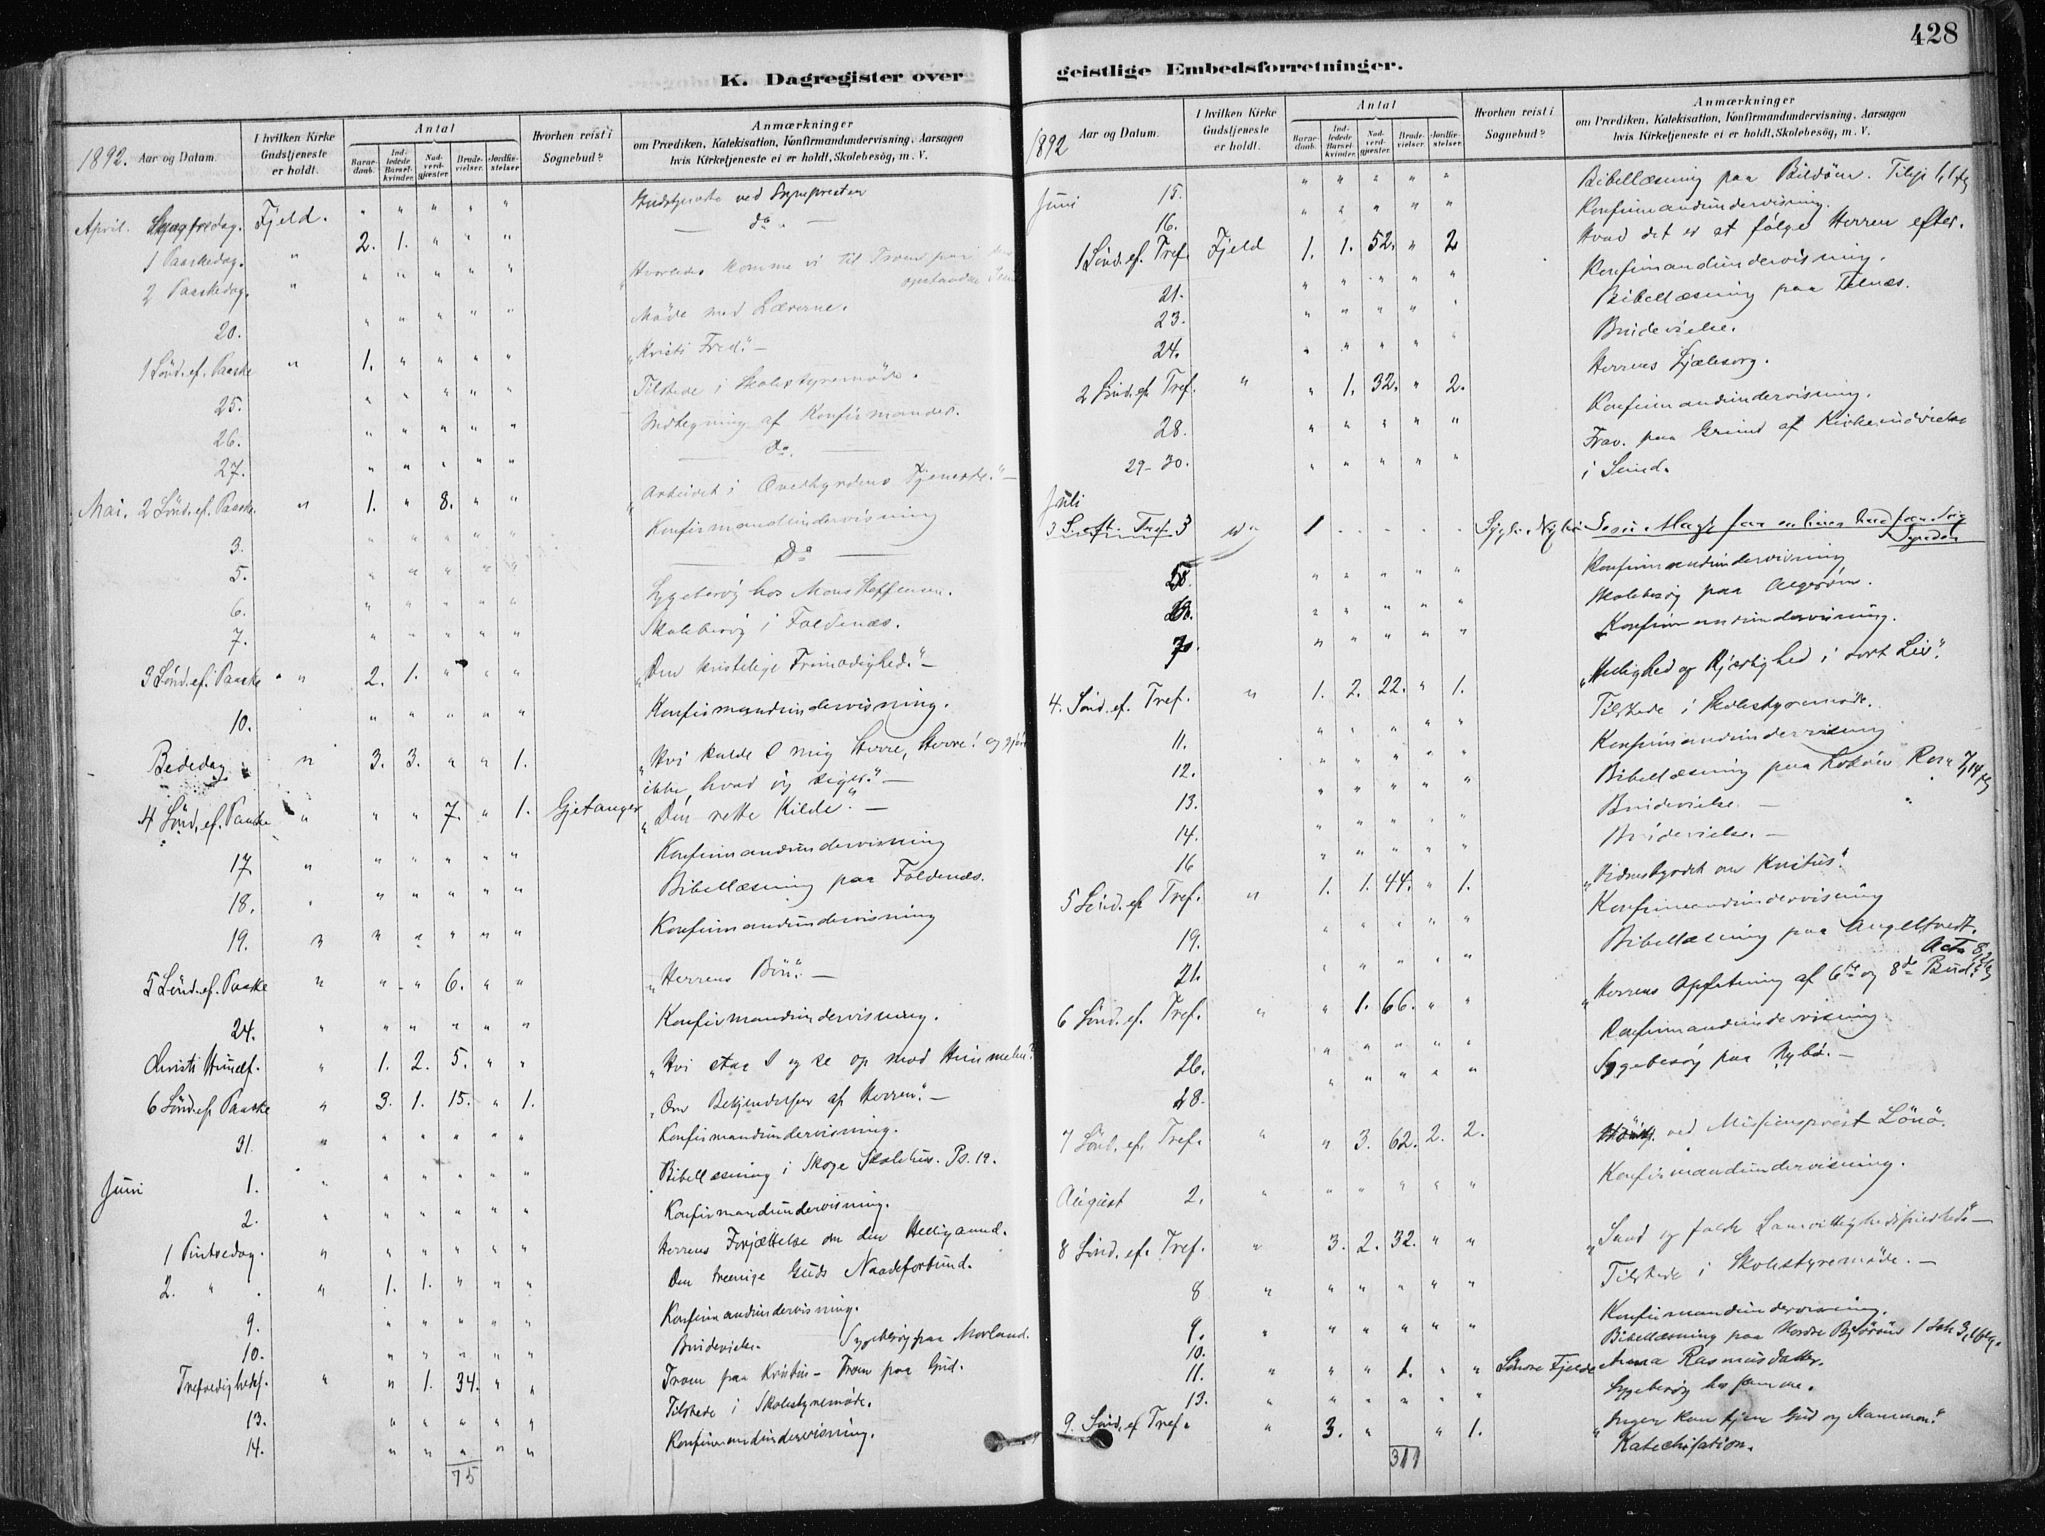 428
K. Dagregister over
geistlige Embedsforretninger.
1892. Aar og Datum.
I hvilken Kirke Gudstjeneste er holdt.
Antal
Barnedaab.
Indledede Barselkvinder.
Nadverdgjæster.
Brudevielser.
Jordfæstelser.
Hvorhen reist i Sognebud?
Anmærkninger
om Prædiken, Katekisation, Konfirmandundervisning, Aarsagen
hvis Kirketjeneste ei er holdt, Skolebesøg, m. V.
April. Fjeld. " " " " " Gudstjeneste ved Sognepresten
1 Paaskedag. " 2. 1. " " " do.
2 Paaskedag. " " " " " " Hvorledes komme vi til Troen paa den
opstandne
20. " " " " " Møde med Lærerne.
1 Sönd. ef. Paaske " 1. " " " " "Kristi Fred." –
25. " " " " " Tilstede i Skolestyremøde.
26. " " " " " Indtegning af Konfirmander.
27. " " " " " Do.
Mai. 2 Sönd. ef. Paaske. " 1. " 8. " " Arbeidet i Overhyrdens Tjeneste." –
3. " " " " " Konfirmandundervisning
5. " " " " " Do
6. " " " " " Sygebesög hos Mons Steffensen.
7. " " " " " Skolebesög i Foldenæs.
3 Sönd. ef. Paaske " 2. 1. " " " "Den kristelige Frimodighed." –
10. " " " " " Konfirmandundervisning.
Bededag " 3. 3. " " 1. "Hvi kalde I mig Herre, Herre! og gjöre
ikke, hvad jeg siger." –
4 Sönd. ef. Paaske " " " 7. " 1. Gjetanger "Den rette Kilde." –
17. " " " " " " Konfirmandundervisning
18. " " " " " " Bibellæsning paa Foldenæs.
19. " " " " " " Konfirmandundervisning
5 Sönd. ef. Paaske " " " 6. " " "Herrens Bön." –
24. " " " " " " Konfirmandundervisning.
Christi Himelf. " 1. 2. 5. " " "Hvi staa I og se op mod Himmelen?
6 Sönd. ef. Paaske " 3. 1. 15. " 1. "Om Bekjendelsen af Herren." –
31. " " " " " " Konfirmandundervisning.
Juni 1. " " " " " " Bibellæsning i Skoge Skolehus. Ps. 19.
2. " " " " " " Konfirmandundervisning.
1 Pintsedag. " " " " " " Herrens Forjættelse om den Helligaand.
2. " " 1. 1. " " " Den treenige Guds Naadeforbund.
9. " " " " " Konfirmandundervisning.
10. " " " " " Brudevielse. Sygebesög paa Morland.
Trefoldighedsf. " " 1. 34. " " Troen paa Kristus – Troen paa Gud.
13. " " " " " Tilstede i Skolestyremøde.
14. " " " " " Konfirmandundervisning.
75
1892 Aar og Datum.
I hvilken Kirke Gudstjeneste er holdt.
Antal
Barnedaab.
Indledede Barselkvinder.
Nadverdgjæster.
Brudevielser.
Jordfæstelser.
Hvorhen reist i Sognebud?
Anmærkninger
om Prædiken, Katekisation, Konfirmandundervisning, Aarsagen
hvis Kirketjeneste ei er holdt, Skolebesøg, m. V.
Juni 15. " " " " " Bibellæsning paa Bildöen.
16. " " " " " Konfirmandundervisning.
1 Sönd. ef. Tref. Fjeld 1. 1. 52. " 2 Hvad det er at følge Herren efter.
21. " " " " " Konfirmandundervisning.
23. " " " " " Bibellæsning paa Telnæs.
24. " " " " " Brudevielse.
2 Sönd. ef. Tref. " " 1. 32. " 2. Herrens Sjælesorg.
28. " " " " " Konfirmandundervisning.
29-30. " " " " " Frav. paa Grund af Kirkeindvielse
i Sund.
Juli
3 S. eft. Tref. 3 1 Jesu Magt
" " " " " Konfirmandundervisning
" " " " " Skolebesög paa Algeröen.
7 " " " " " Konfirmandundervisning.
4. Sönd. ef. Tref. " 1. 2. 22. " 1. "Hellighed og Kjærlighed i vort Liv."
11. " " " " " Tilstede i Skolestyremøde.
12. " " " " " Konfirmandundervisning
13. " " " " " Bibellæsning paa Lokøen Rom 7,14 fg
14. " " " " " Brudevielse. –
16 " " " " " Brudevielse. –
5 Sönd. ef. Tref. " 1. 1. 44. " 1. "Vidnesbyrdet om Kristus."
19. " " " " " Konfirmandundervisning
21. " " " " " Bibellæsning paa Angeltvedt.
Acta 8,
6 Sönd. ef. Tref. " " 1. 66. " " "Herrens Opfatning af 6te og 8de Bud."
26. " " " " " Konfirmandundervisning
28. " " " " " Sygebesög paa Nybö. –
7 Sönd. ef. Tref. " " 3. 62. 2. 2. ved Missionsprest Lönö.
August 2. " " " " " " Konfirmandundervisning.
8 Sönd. ef. Tref. " 3. 2. 32. " " "Sand og falsk Samvittighedsfrihed." –
8 " " " " " " Tilstede i Skolestyremøde. –
9. " " " " " " Konfirmandundervisning.
10. Bibellæsning paa Nordre 1 Joh 3,
11. " " " 1. " " Söndre Fjelde Anna Rasmusdatter.
13. " " " " " Sygebesög hos samme.
9. Sönd. ef Tref. " 3. " " 1. "Ingen kan tjene Gud og Mammon."
Katechisation.
311